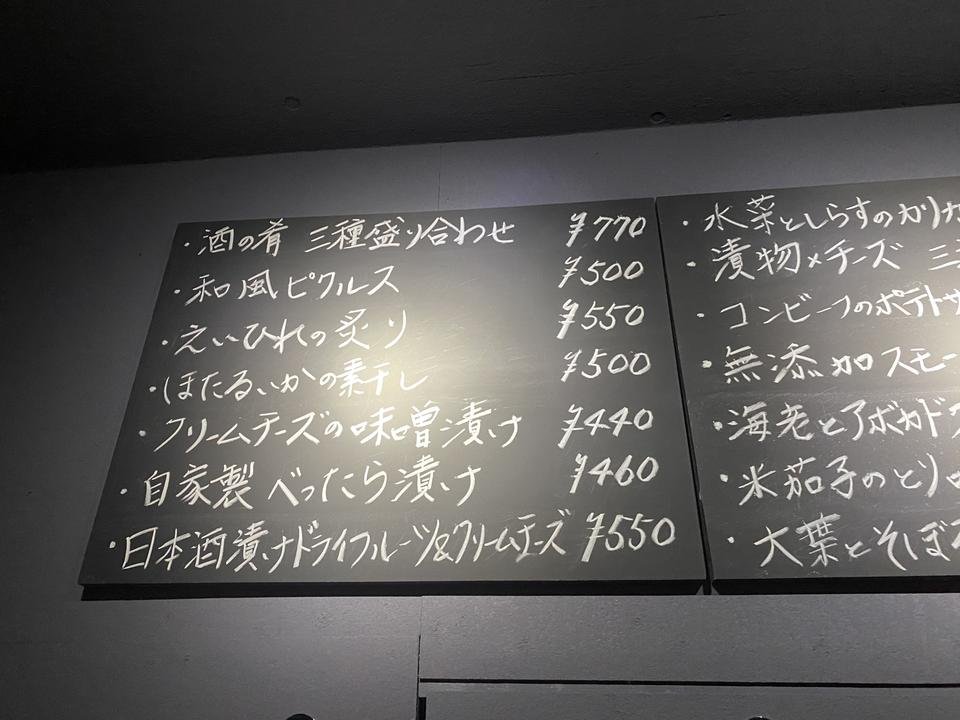 ・酒の肴 三種盛り合わせ ¥770
・和風ピクルス ¥500
・えいひれの炙り ¥550
・ほたるいかの素干し ¥500
・クリームチーズの味噌漬け ¥440
・自家製べったら漬け ¥460
・日本酒漬けドライフルーツ&クリームチーズ ¥550
・水菜としらすのカリカ
・漬物×チーズ 三
・コンビーフのポテトサ
・無添加スモー
・海老とアボカド
・米茄子のとり
・大葉とそぼろ